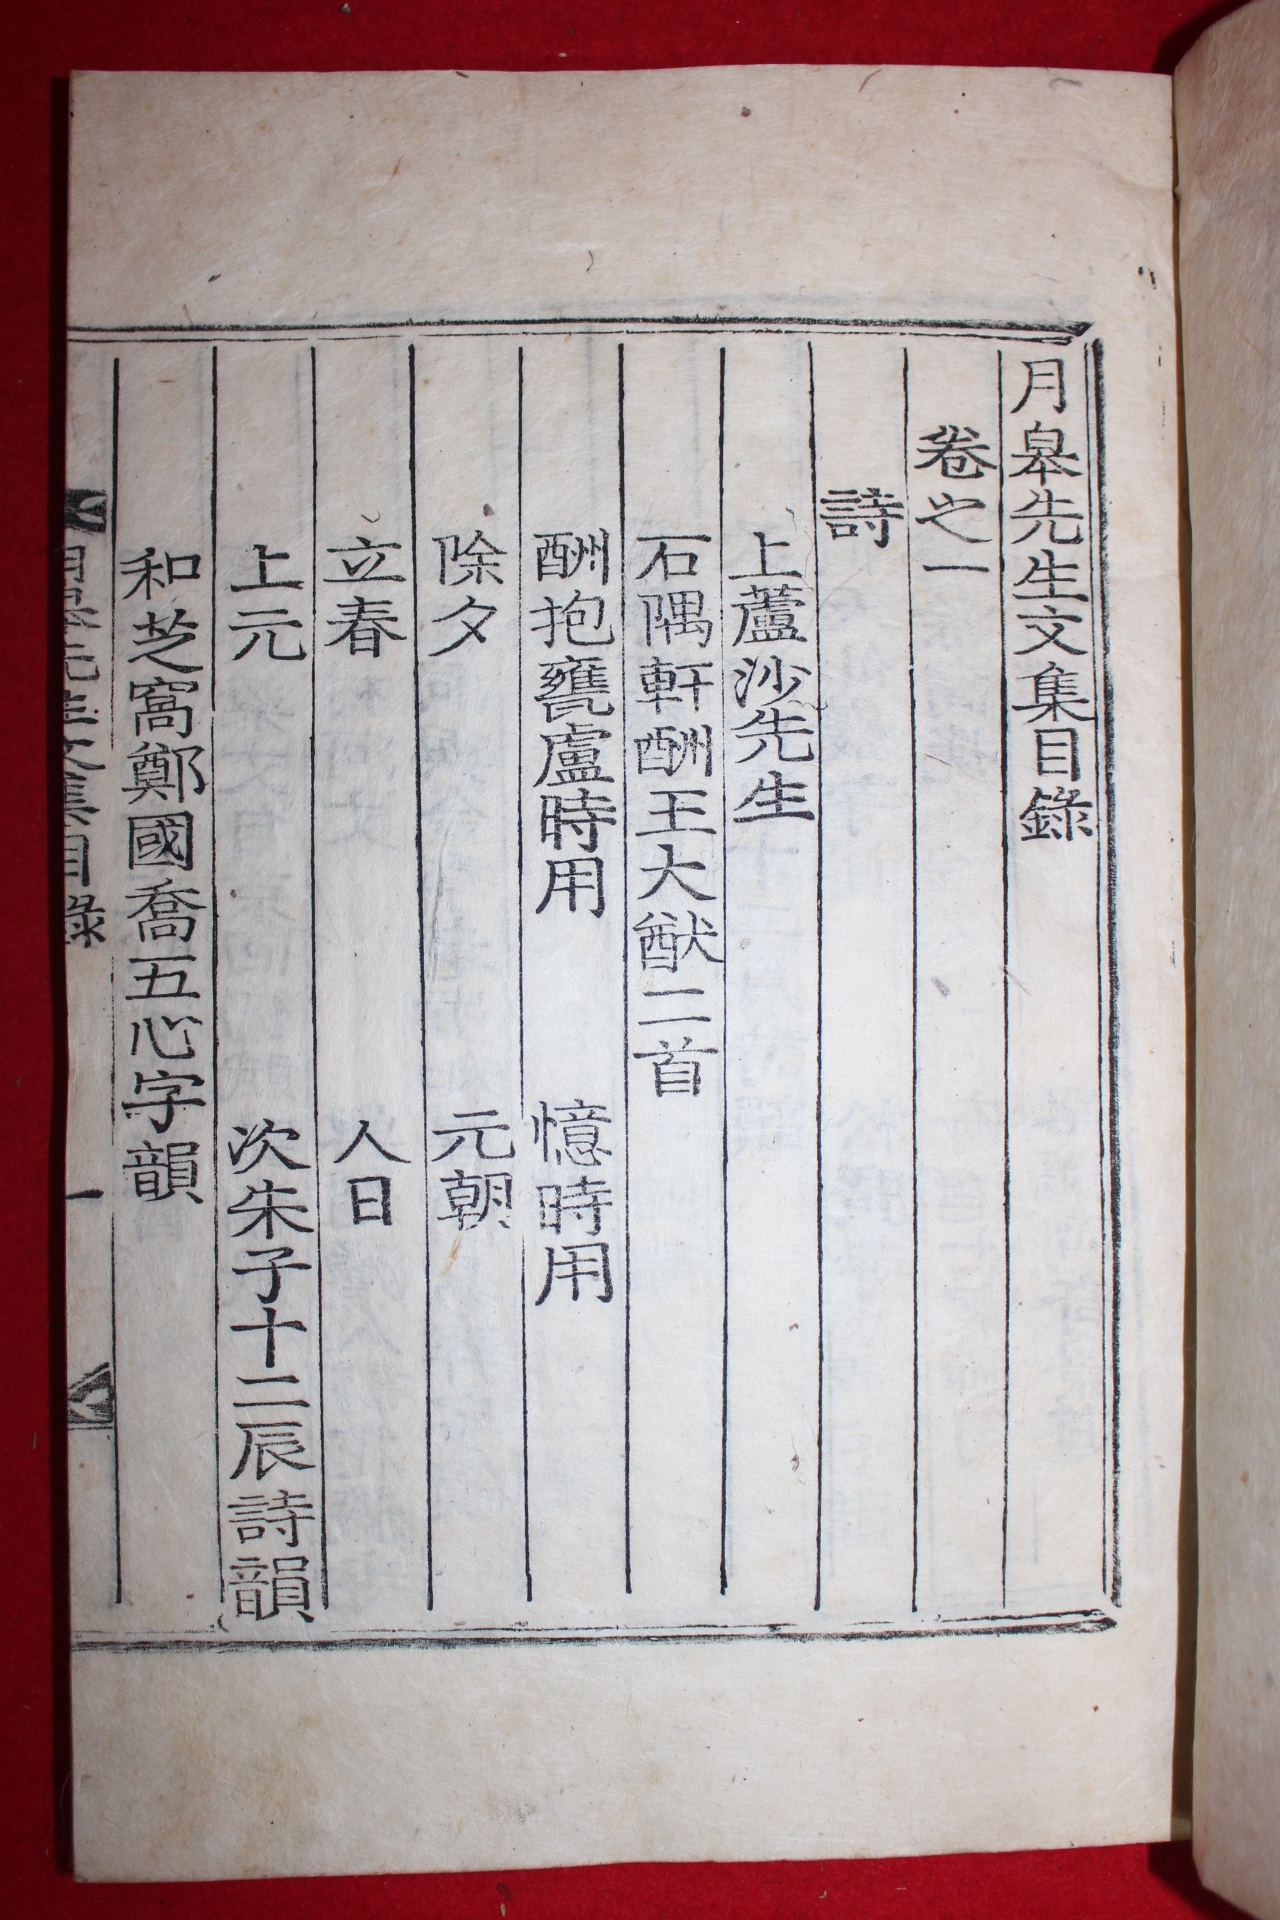 月皐先生文集目錄
卷之一
詩
上蘆沙先生
石隅軒酬王大猷二首
酬抱甕盧時用　憶時用
除夕　元朝
立春　人日
上元　次朱子十二辰詩韻
和芝窩鄭國喬五心字韻
月皐先生文集目錄　一